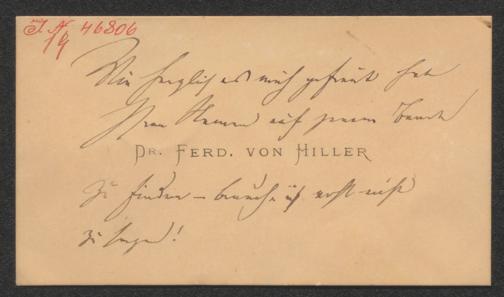 J. N. 46806
19
Wie herzlich es mich gefreut hat
Ihren Namen auf jenem
DR. FERD. VON HILLER
zu finden – brauche ich erst nicht
zu sagen!